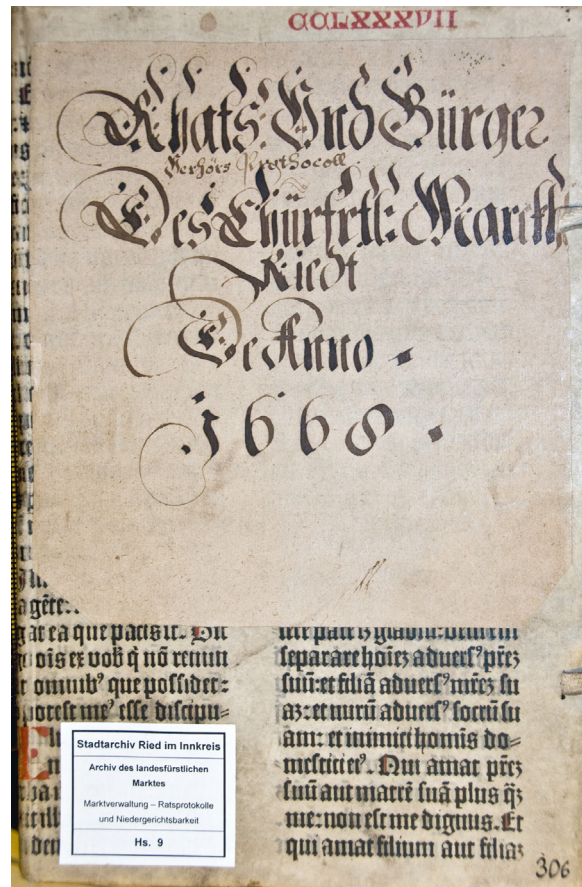 CCLXXXVII
Rhats: Und Bürger
Verhörs Prothocoll
Des Churfrtl: Marckh
Riedt
De Anno.
1668.
agēte:.
gat ea que pacis sūt. Sic
ois ex vob q̄ nō renun
omnib⁹ que possidet:
potest me⁹ esse discipu-
separare hoīez aduers⁹ prēz
suū: et filiā aduers⁹ mrēz su
az: et nurū aduers⁹ socrū su
am: et inimici homīs do=
mestici ei⁹. Qui amat prēz
suū aut matrē suā plus q̄z
me: non est me dignus. Et
qui amat filium aut filiaz
Stadtarchiv Ried im Innkreis
Archiv des landesfürstlichen
Marktes
Marktverwaltung – Ratsprotokolle
und Niedergerichtsbarkeit
Hs. 9
306